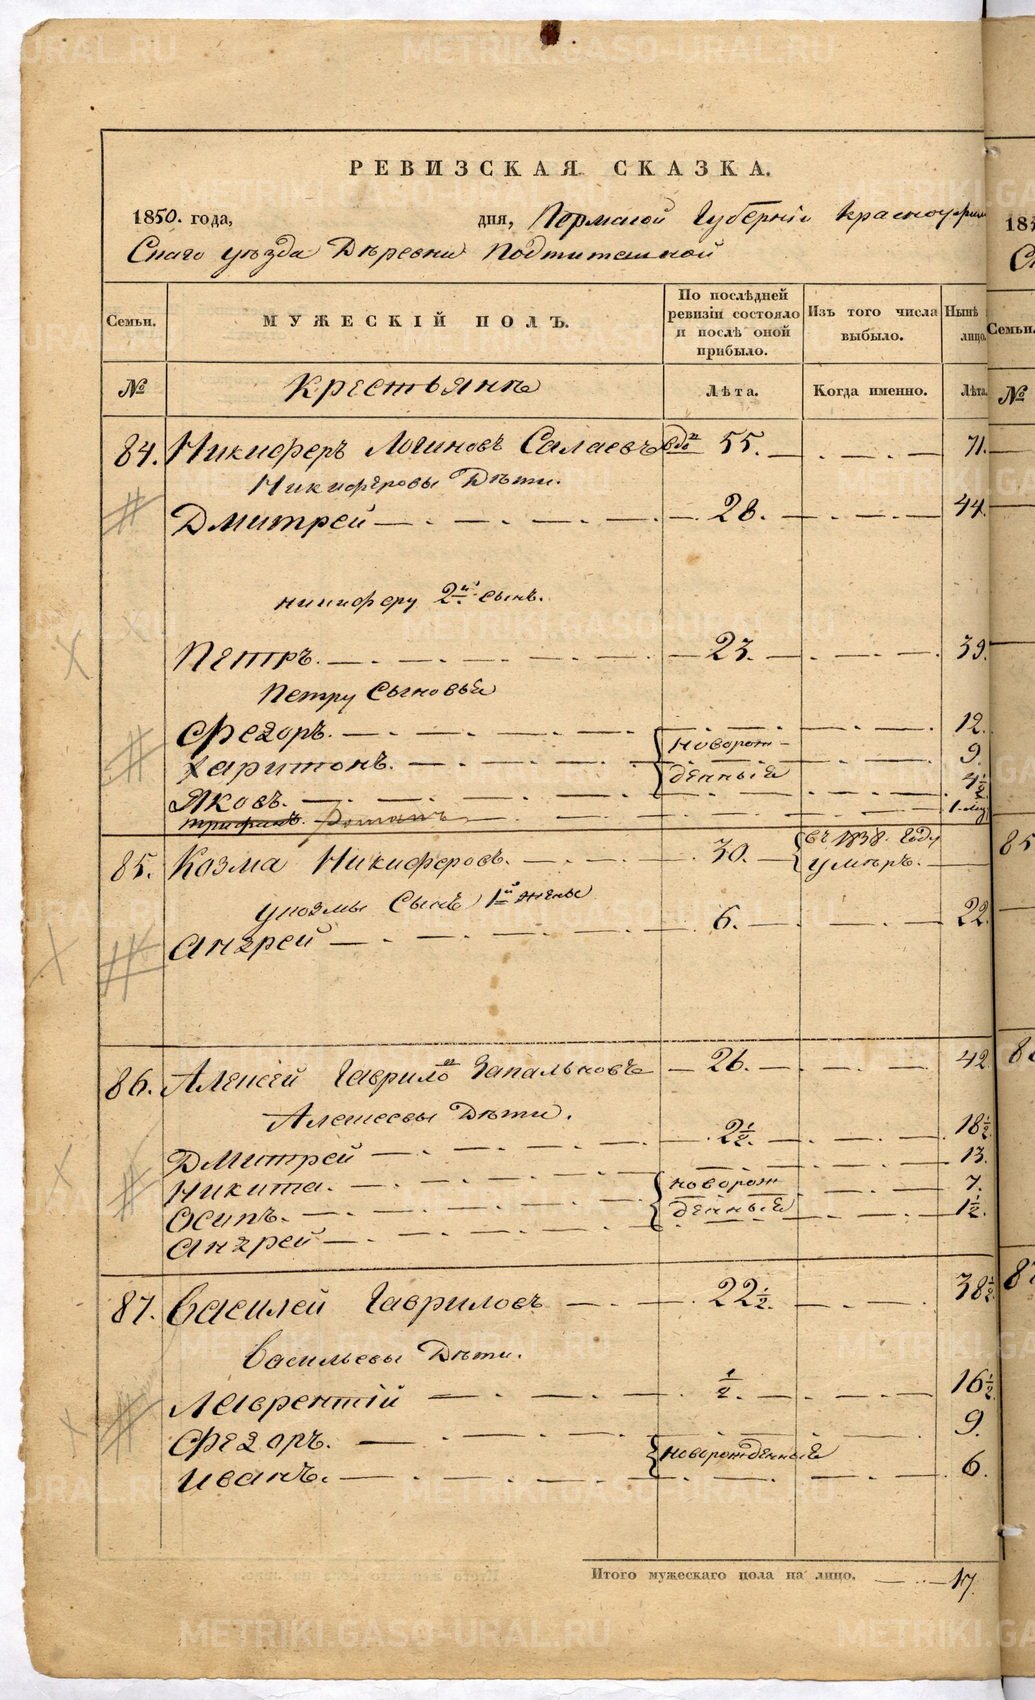 РЕВИЗСКАЯ СКАЗКА.
1850. года, дня, Пермской Губерніи Красноуфим
Скаго уѣзда Деревни Подтитешной
Семьи. МУЖЕСКІЙ ПОЛЪ. По послѣдней ревизіи состояло и послѣ оной прибыло. Изъ того числа выбыло. Нынѣ лицо.
№ Крестьяне Лѣта. Когда именно. Лѣта.
84. Никиферъ Логиновъ Салаевъ 55. 71.
Никиферовы Дѣти.
Дмитрей 28. 44.
никиферу 2й сынъ.
Петръ. 23. 39.
Петру Сыновья
Федоръ. 12.
Харитонъ. новорож- 9.
Яковъ. денныя 4½
Трифанъ. Романъ 1 мец
85. Козма Никиферовъ. 30. въ 1838. Году умеръ.
у козмы Сынъ 1й жены
Андрей 6. 22
86. Алексей Гаврилов Запальковъ 26. 42
Алексеевы Дѣти.
Дмитрей 2½. 18½
Никита. новорож 13.
Осипъ. денныя 7.
Андрей 1½.
87. Василей Гавриловъ 22½. 38½
Васильевы Дѣти.
Лаврентій ½. 16½
Федоръ. новорожденныя 9.
Иванъ. 6.
Итого мужескаго пола на лицо. 17.
METRIKI.GASO-URAL.RU